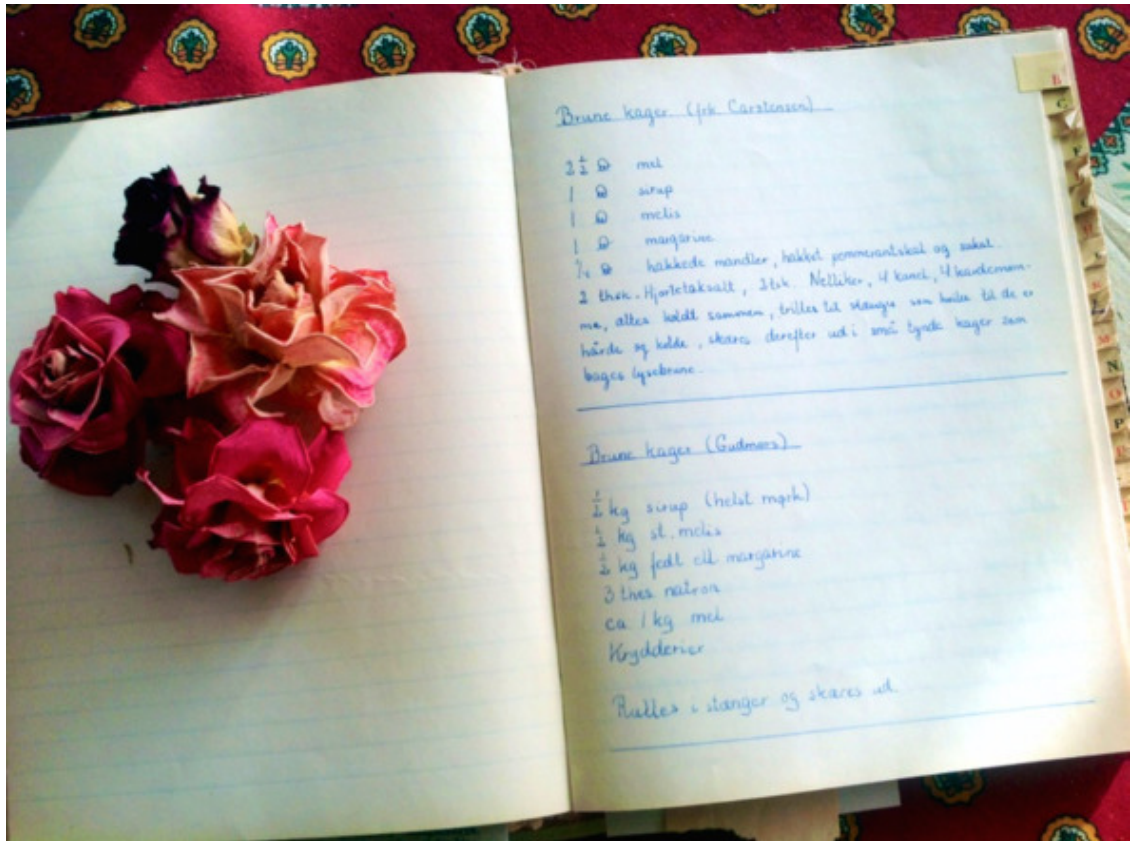 Brune kager (frk Carstensen)
2 1/2 ℔ mel
1 ℔ sirup
1 ℔ melis
1 ℔ margarine
1/4 ℔ hakkede mandler, hakket pommerantskal og sukat.
2 thsk. Hjortetaksalt, 3 tsk. Nelliker, 4 kanel, 4 kardemom-
me, altes koldt sammen, trilles til stænger som hviler til de er
hårde og kolde, skæres derefter ud i små tynde kager som
bages lysebrune.
Brune kager (Gudmors)
1/2 kg sirup (helst mørk)
1/2 kg st. melis
1/2 kg fedt ell margarine
3 thes natron
ca 1 kg mel
Krydderier
Rulles i stænger og skæres ud.
B
C
L
M
N
O
P
R